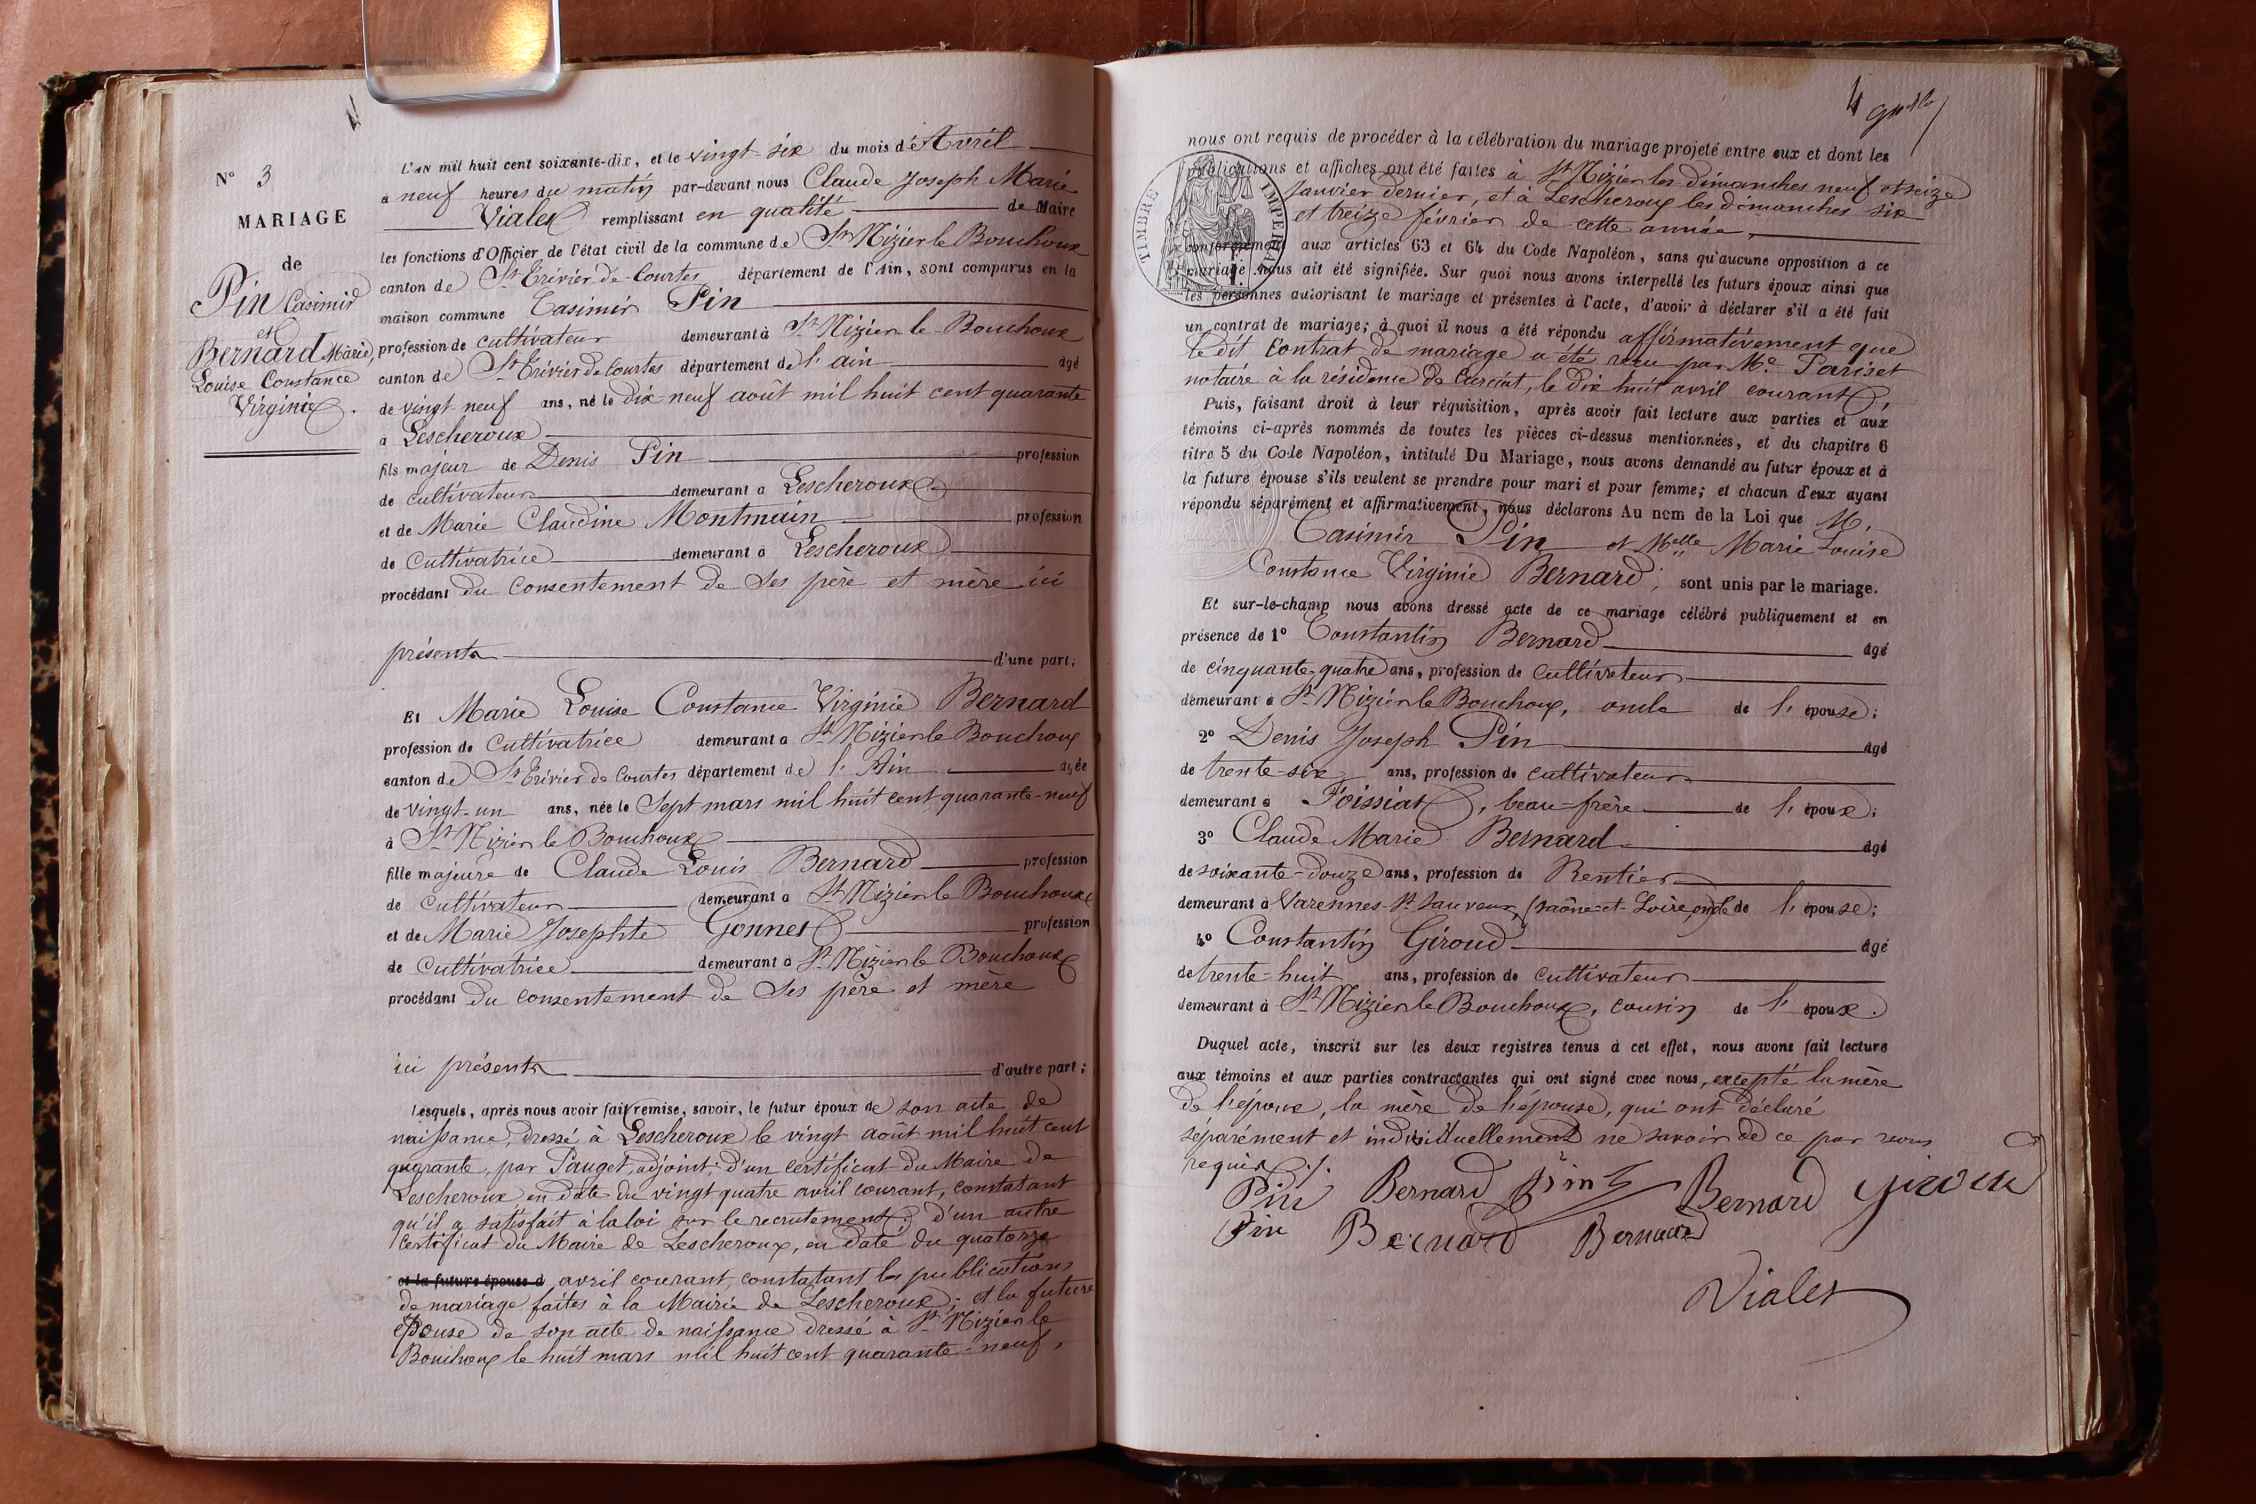 N° 3
MARIAGE
de
Pin Casimir
et
Bernard Marie,
Louise Constance
Virginie.
L'AN mil huit cent soixante-dix, et le vingt-six du mois d'Avril
à neuf heures du matin par-devant nous Claude Joseph Marie
Vialet remplissant en qualité de Maire
les fonctions d'Officier de l'état civil de la commune de St Nizier le Bouchoux
canton de St Trivier de Courtes département de l'Ain, sont comparus en la
maison commune Casimir Pin
profession de cultivateur demeurant à St Nizier le Bouchoux
canton de St Trivier de Courtes département de l'ain âgé
de vingt neuf ans, né le dix neuf août mil huit cent quarante
à Lescheroux
fils majeur de Denis Pin profession
de cultivateur demeurant à Lescheroux
et de Marie Claudine Montmain profession
de cultivatrice demeurant à Lescheroux
procédant du consentement de ses père et mère ici
présents d'une part;
Et Marie Louise Constance Virginie Bernard
profession de cultivatrice demeurant à St Nizier le Bouchoux
canton de St Trivier de Courtes département de l'Ain âgée
de vingt-un ans, née le Sept mars mil huit cent quarante-neuf
à St Nizier le Bouchoux
fille majeure de Claude Louis Bernard profession
de cultivateur demeurant à St Nizier le Bouchoux
et de Marie Josephte Gonnet profession
de cultivatrice demeurant à St Nizier le Bouchoux
procédant du consentement de ses père et mère
ici présents d'autre part;
Lesquels, après nous avoir fait remise, savoir, le futur époux de son acte de
naissance, dressé à Lescheroux le vingt août mil huit cent
quarante, par Pauget, adjoint; d'un certificat du Maire de
Lescheroux en date du vingt quatre avril courant, constatant
qu'il a satisfait à la loi sur le recrutement; d'un autre
certificat du Maire de Lescheroux, en date du quatorze
et la future épouse d avril courant, constatant les publications
de mariage faites à la Mairie de Lescheroux; et la future
épouse de son acte de naissance dressé à St Nizier le
Bouchoux le huit mars mil huit cent quarante-neuf,
4
nous ont requis de procéder à la célébration du mariage projeté entre eux et dont les
publications et affiches ont été faites à St Nizier les dimanches neuf et seize
Janvier dernier, et à Lescheroux les dimanches six
et treize février de cette année,
TIMBRE IMPERIAL
conformément aux articles 63 et 64 du Code Napoléon, sans qu'aucune opposition à ce
mariage nous ait été signifiée. Sur quoi nous avons interpellé les futurs époux ainsi que
les personnes autorisant le mariage et présentes à l'acte, d'avoir à déclarer s'il a été fait
un contrat de mariage; à quoi il nous a été répondu affirmativement que
le dit Contrat de mariage a été reçu par Me Pariset
notaire à la résidence de Curciat, le dix huit avril courant,
Puis, faisant droit à leur réquisition, après avoir fait lecture aux parties et aux
témoins ci-après nommés de toutes les pièces ci-dessus mentionnées, et du chapitre 6
titre 5 du Code Napoléon, intitulé Du Mariage, nous avons demandé au futur époux et à
la future épouse s'ils veulent se prendre pour mari et pour femme; et chacun d'eux ayant
répondu séparément et affirmativement, nous déclarons Au nom de la Loi que M.
Casimir Pin et Melle Marie Louise
Constance Virginie Bernard; sont unis par le mariage.
Et sur-le-champ nous avons dressé acte de ce mariage célébré publiquement et en
présence de 1° Constantin Bernard âgé
de cinquante-quatre ans, profession de cultivateur
demeurant à St Nizier le Bouchoux, oncle de l'épouse;
2° Denis Joseph Pin âgé
de trente-six ans, profession de cultivateur
demeurant à Foissiat, beau-frère de l'époux;
3° Claude Marie Bernard âgé
de soixante-douze ans, profession de Rentier
demeurant à Varennes-St Sauveur, (Saône-et-Loire, oncle de l'épouse;
4° Constantin Giroud âgé
de trente-huit ans, profession de cultivateur
demeurant à St Nizier le Bouchoux, cousin de l'époux.
Duquel acte, inscrit sur les deux registres tenus à cet effet, nous avons fait lecture
aux témoins et aux parties contractantes qui ont signé avec nous, excepté la mère
de l'époux, la mère de l'épouse, qui ont déclaré
séparément et individuellement ne savoir de ce par nous
requis ./.
Pin Bernard Pin Bernard Giroud
Pin Bernard Bernard
Vialet